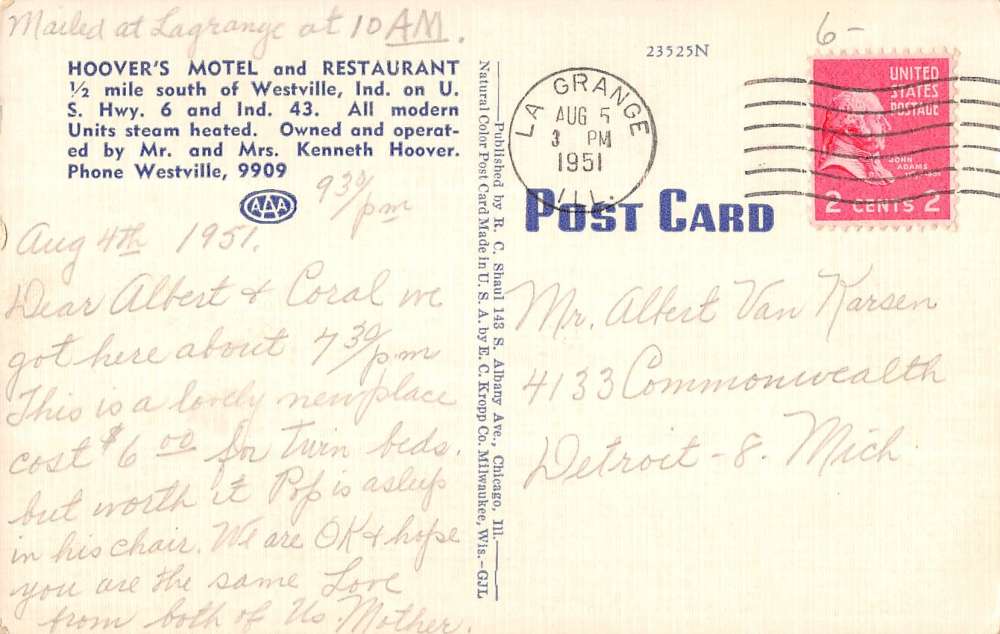 Mailed at Lagrange at 10 AM.
HOOVER'S MOTEL and RESTAURANT
½ mile south of Westville, Ind. on U.
S. Hwy. 6 and Ind. 43. All modern
Units steam heated. Owned and operat-
ed by Mr. and Mrs. Kenneth Hoover.
Phone Westville, 9909
AAA
9 30/pm
Aug 4th 1951.
Dear Albert & Coral we
got here about 7 30/pm
This is a lovely new place
cost $6 00 for Twin beds.
but worth it Pop is asleep
in his chair. We are OK & hope
you are the same Love
from both of Us. Mother.
Published by R. C. Shaul 143 S. Albany Ave., Chicago, Ill.
Natural Color Post Card Made in U. S. A. by E. C. Kropp Co. Milwaukee, Wis.-GJL
6-
23525N
LA GRANGE
AUG 5
3 PM
1951
ILL.
UNITED
STATES
POSTAGE
JOHN
ADAMS
2 CENTS 2
POST CARD
Mr. Albert Van Karsen
4133 Commonwealth
Detroit-8. Mich.